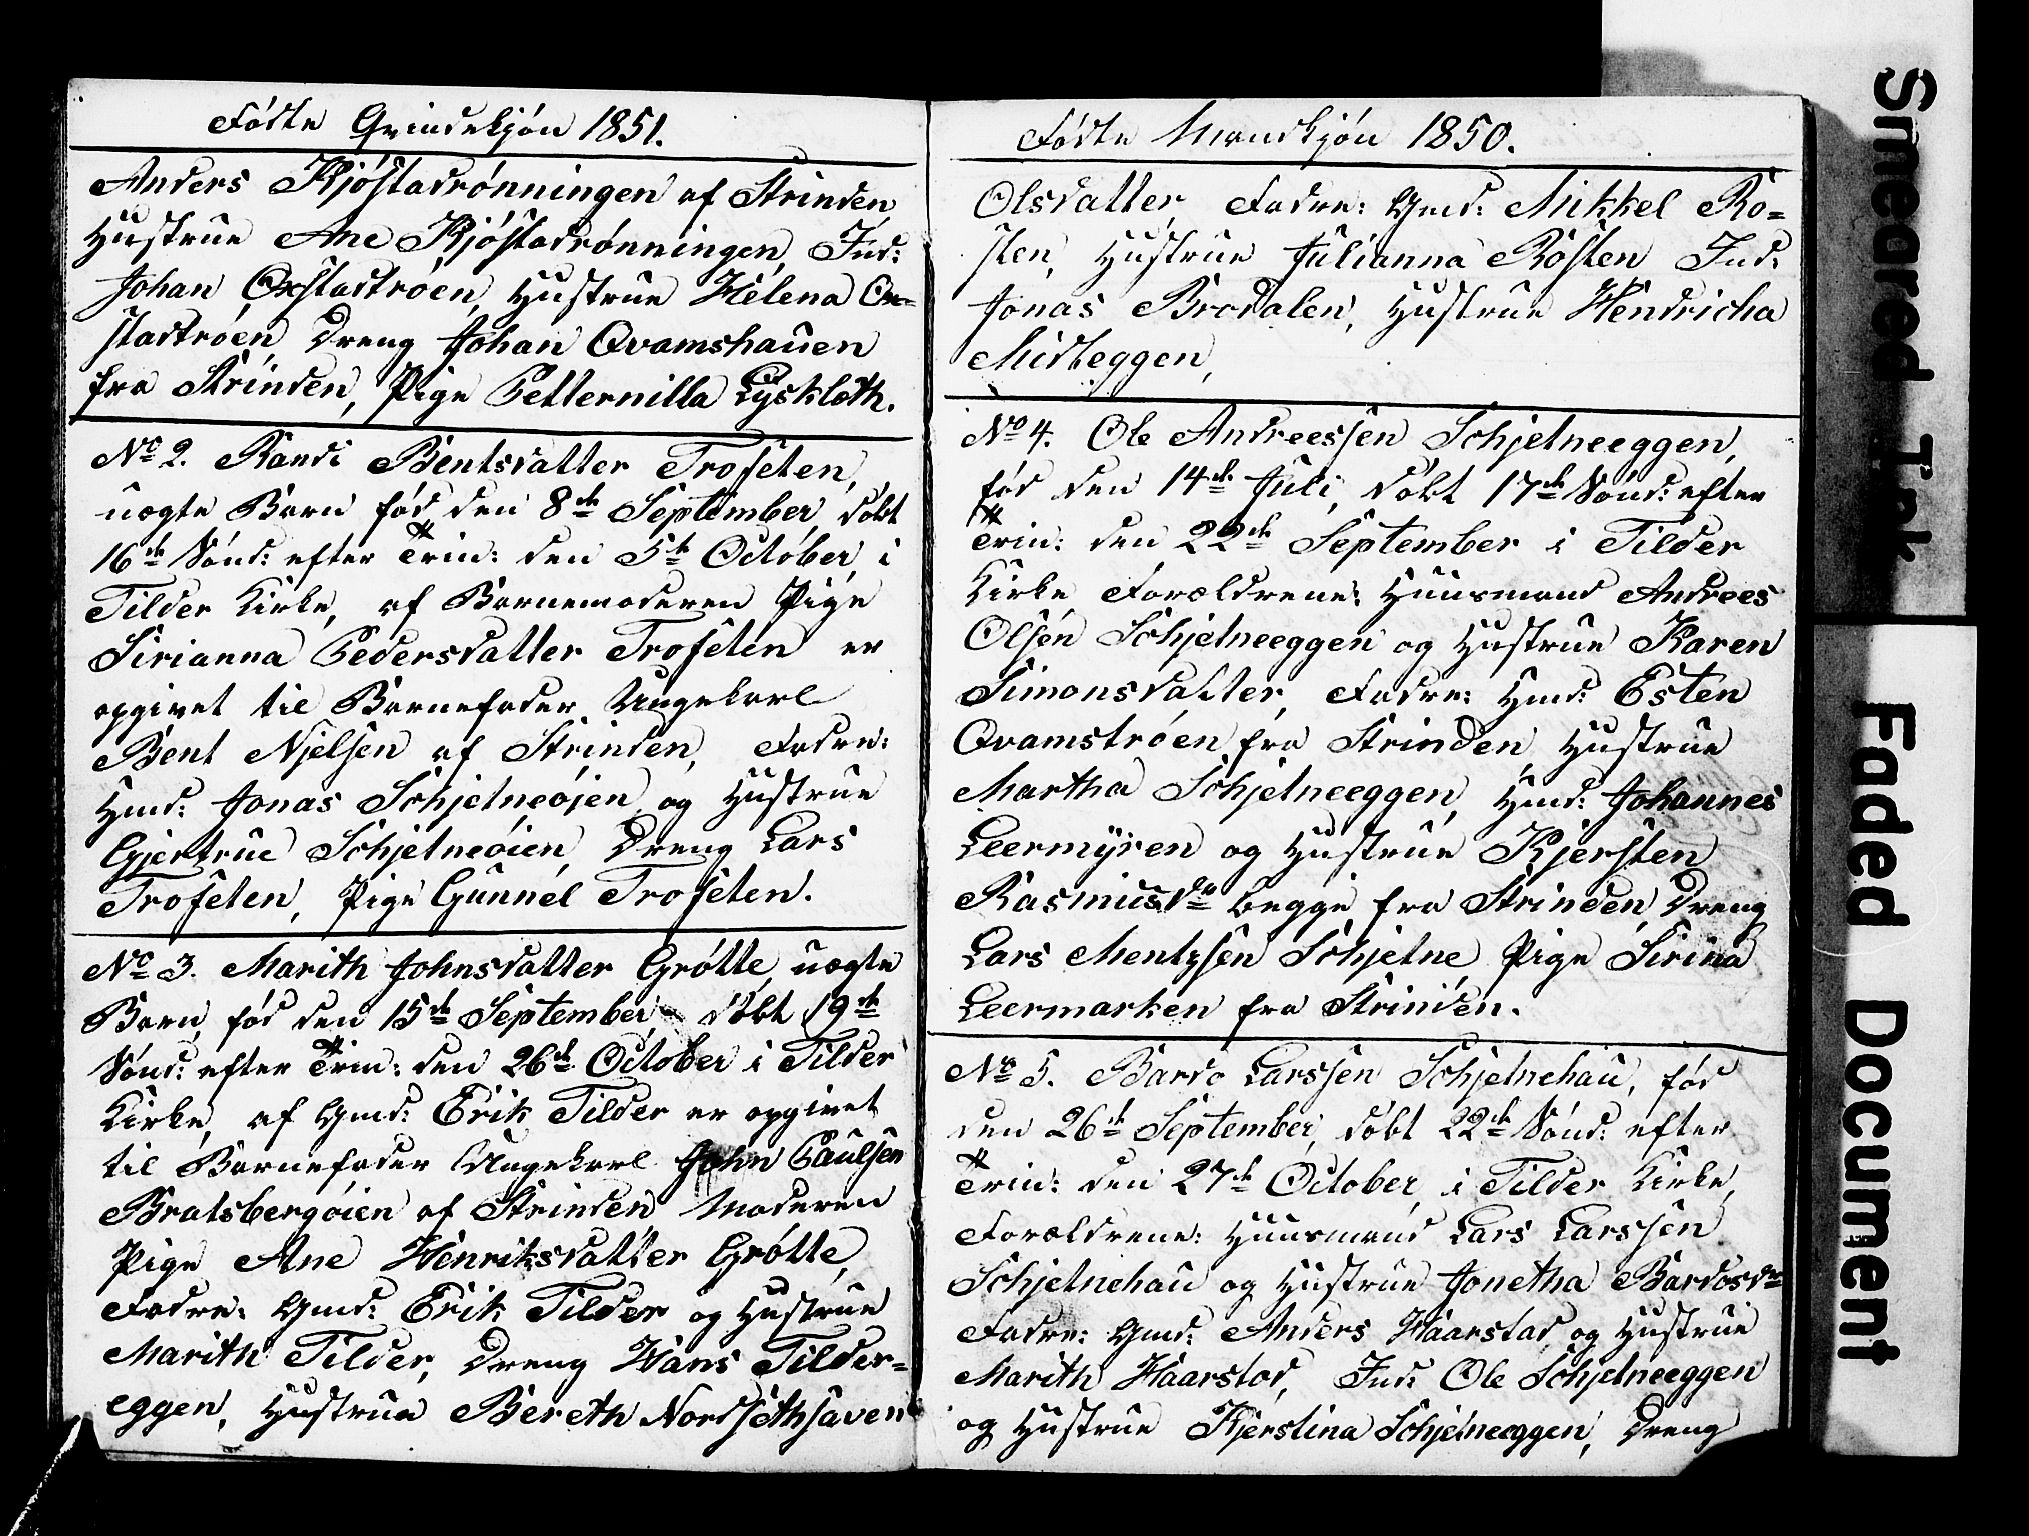 Fødte Qvindekjøn 1851.
Anders Kjøstadrønningen af Strinden,
Hustrue Ane Kjøstadrønningen, Ind:
Johan Oxstadtrøen, Hustrue Helena Ox-
stadtrøen Dreng Johan Qvamshauen
fra Strinden, Pige Petternilla Lyskloth.
No 2. Randi Bentsdatter Troseten,
uægte Barn fød den 8de September, døbt
16de Sønd: efter Trin: den 5te October, i
Tilder Kirke, af Barnemoderen Pige
Sirianna Pedersdatter Trosetén er
opgivet til Barnefader Ungekarl
Bent Njelsen af Strinden, Fadre:
Hmd: Jonas Schjetneøjen, og Hustrue
Gjertrue Schjetneøien, Dreng Lars
Troseten, Pige Gunnél Troseten.
No 3. Marith Johnsdatter Grøtte, uægte
Barn, fød den 15de September, døbt 19de
Sønd: efter Trin: den 26de October i Tilder
Kirke, af Gmd: Erik Tilder er opgivet
til Barnefader Ungekarl John Paulsen
Bratsbergøien af Strinden Moderen
Pige Ane Henriksdatter Grøtte,
Fadre: Gmd: Erik Tilder og Hustrue
Marith Tilder, Dreng Hans Tilder=
eggen, Hustrue Bereth Nordsethsaven
Fødte Mandkjøn 1850.
Olsdatter, Fadre: Gmd: Mikkel Ro=
sten, Hustrue Julianna Rosten Ind:
Jonas Brodalen, Hustrue Hendricha
Midteggen,
No 4. Ole Andreessen Schjetneeggen,
fød den 14de Juli, døbt 17de Sønd: efter
Trin: den 22de September i Tilder
Kirke Forældrene: Huusmand Andrees
Olsén Schjetneeggen og Hustrue Karen
Simonsdatter, Fadre: Hmd: Esten
Qvamstrøen fra Strinden, Hustrue
Martha Schjetneeggen, Hmd: Johannes
Leermÿren og Hustrue Kjersten
Rasmusdr begge fra Strinden Dreng
Lars Mentzsen Schjetne, Pige Sirina
Leermarken fra Strinden.
No 5. Bardo Larssen Schjetnehau, fød
den 26de September, døbt 22de Sønd: efter
Trin: den 27de October, i Tilder Kirke,
Forældrene: Huusmand Lars Larssen
Schjetnehau og Hustrue Jonetha Bardosdr
Fadre: Gmd: Anders Haarstad og Hustrue
Marith Haarstad, Ind: Ole Schjetneeggen
og Hustrue Kjerstina Schjetneeggen, Dreng
Smeared Ink
Faded Document